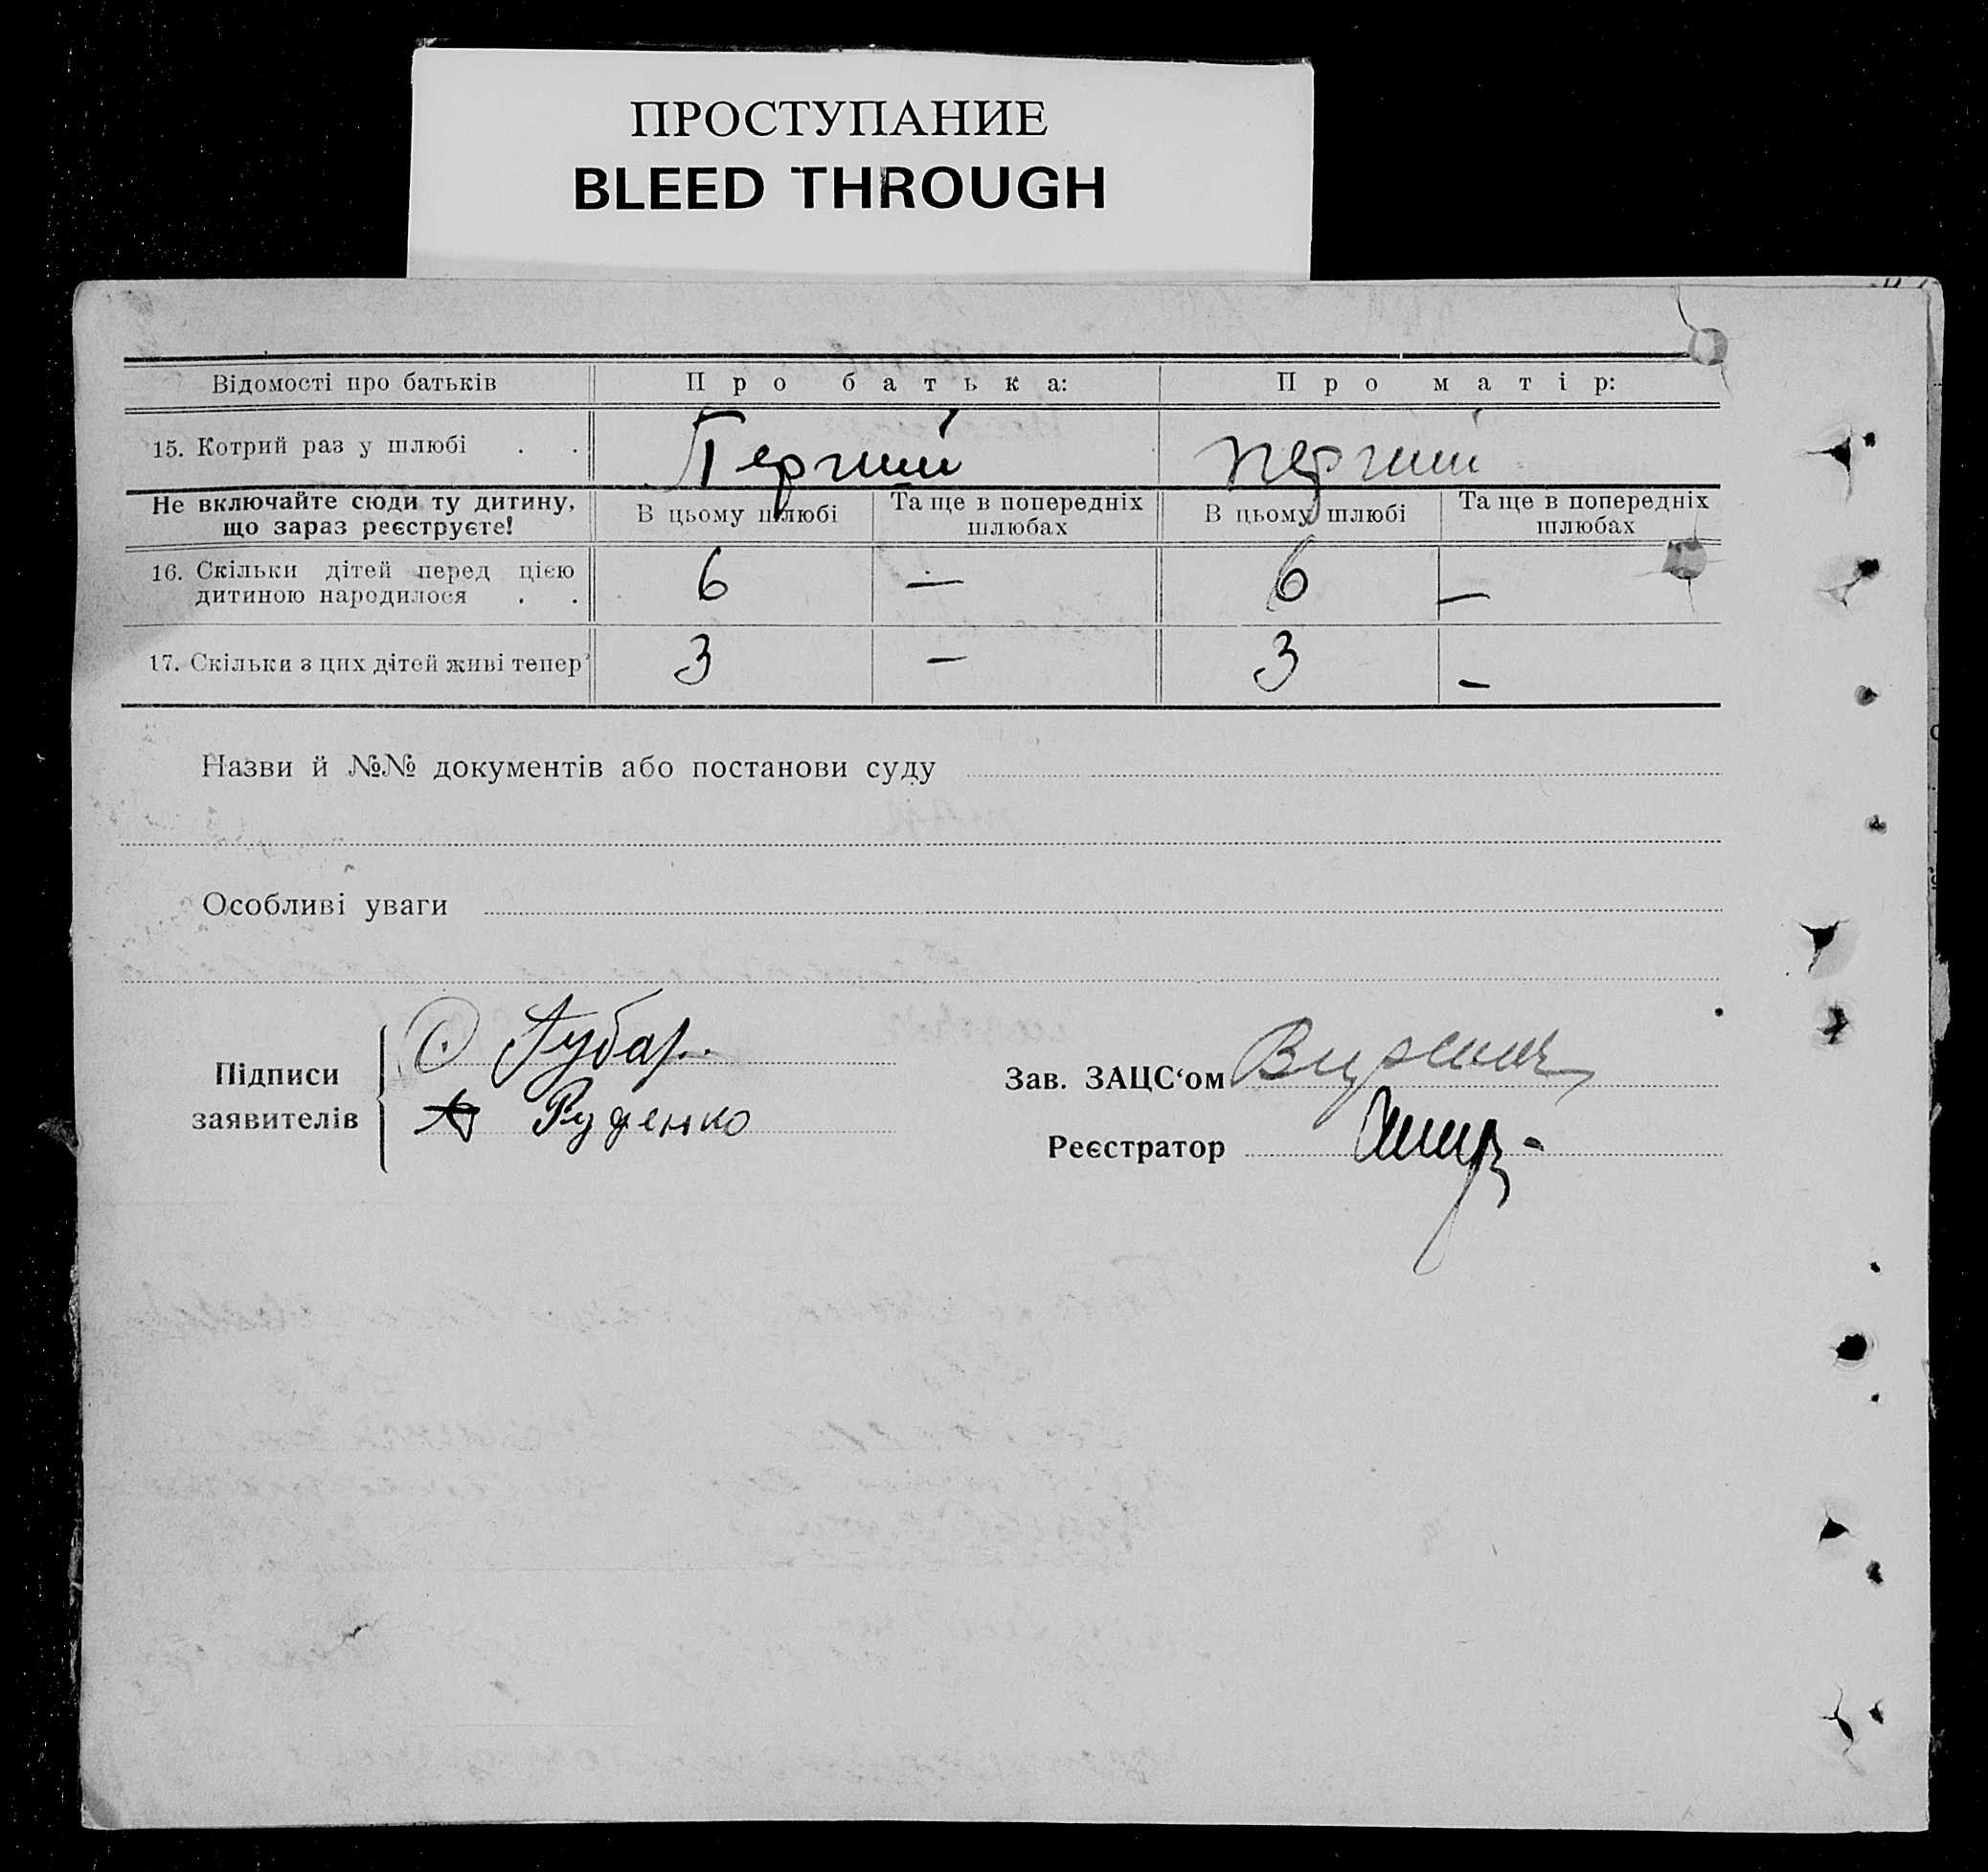 ПРОСТУПАНИЕ
BLEED THROUGH
Відомості про батьків Про батька: Про матір:
15. Котрий раз у шлюбі . . Перший перший
Не включайте сюди ту дитину, що зараз реєструєте! В цьому шлюбі Та ще в попередніх шлюбах В цьому шлюбі Та ще в попередніх шлюбах
16. Скільки дітей перед цією дитиною народилося . . 6 — 6 —
17. Скільки з цих дітей живі тепер 3 — 3 —
Назви й №№ документів або постанови суду
Особливі уваги
Підписи заявителів
Руденко
Зав. ЗАЦС‘ом
Реєстратор